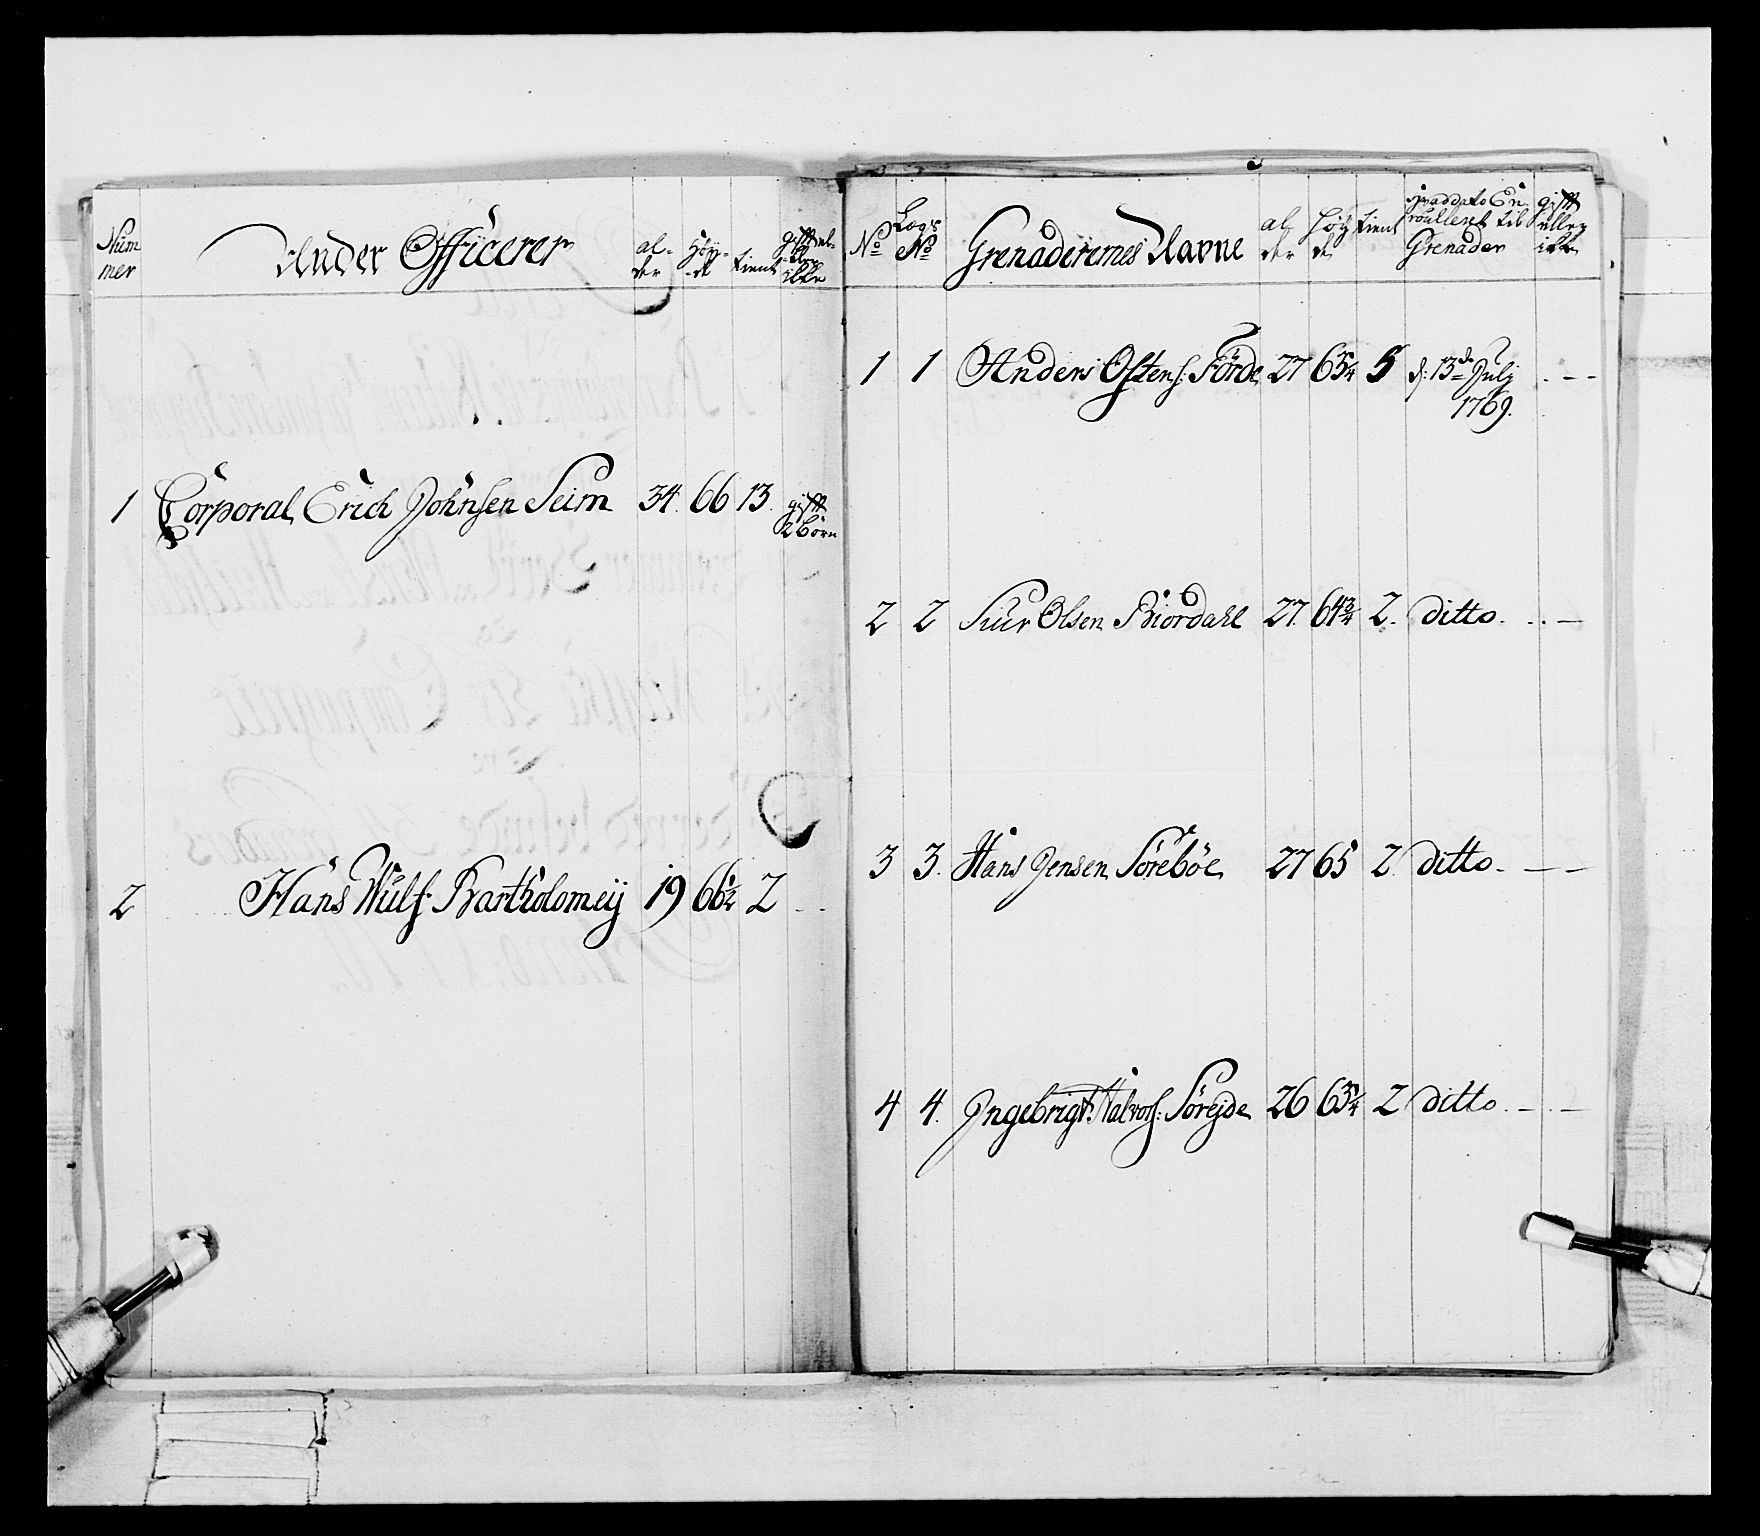 Num
mer
Under Officerer
al-
der
Höy-
de
tient
gifft el-
ller
ikke
1 Corporal Erich Johnsen Seim 34. 66 13. gifft
2 Börn
2 Hans Wulf: Bartholomeij 19 66½ 2
No
Læg's
No
Grenaderernes Navne
al
der
Höy
de
tient
qvaddato En
roulleret til
Grenader
gifft
eller
ikke
1 1 Anders Ostens: Förde 27 63¾ 5 d: 13de Julj
1769.
2 2 Siur Olsen Biordahl 27. 64¾ 2. ditto.
3 3. Hans Jensen Sörebőe 27 65 2 ditto.
4 4. Jngebrigt Halvors: Sörejde 26 63¾ 2 ditto.